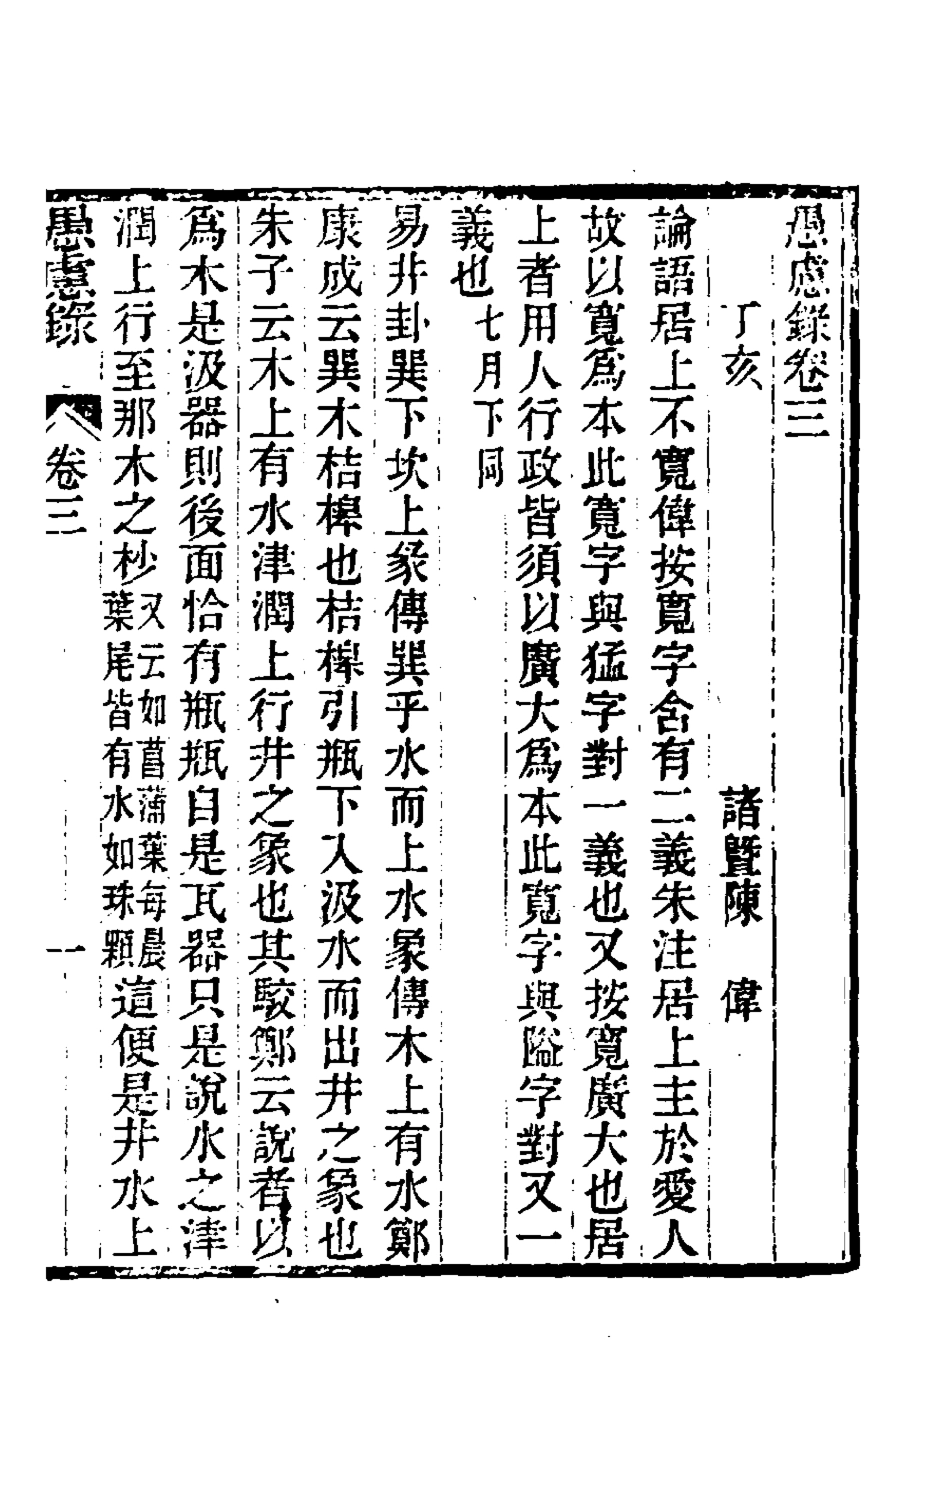 愚慮錄卷三
丁亥　諸曁陳　偉
論語居上不寬偉按寬字含有二義朱注居上主於愛人
故以寬爲本此寬字與猛字對一義也又按寬廣大也居
上者用人行政皆須以廣大爲本此寬字與隘字對又一
義也七月下同
易井卦巽下坎上彖傳巽乎水而上水象傳木上有水鄭
康成云巽木桔橰也桔橰引瓶下入汲水而出井之象也
朱子云木上有水津潤上行井之象也其駮鄭云說者以
爲木是汲器則後面恰有瓶瓶自是瓦器只是說水之津
潤上行至那木之杪又云如菖蒲葉每晨葉尾皆有水如珠顆這便是井水上
愚慮錄　卷三　一